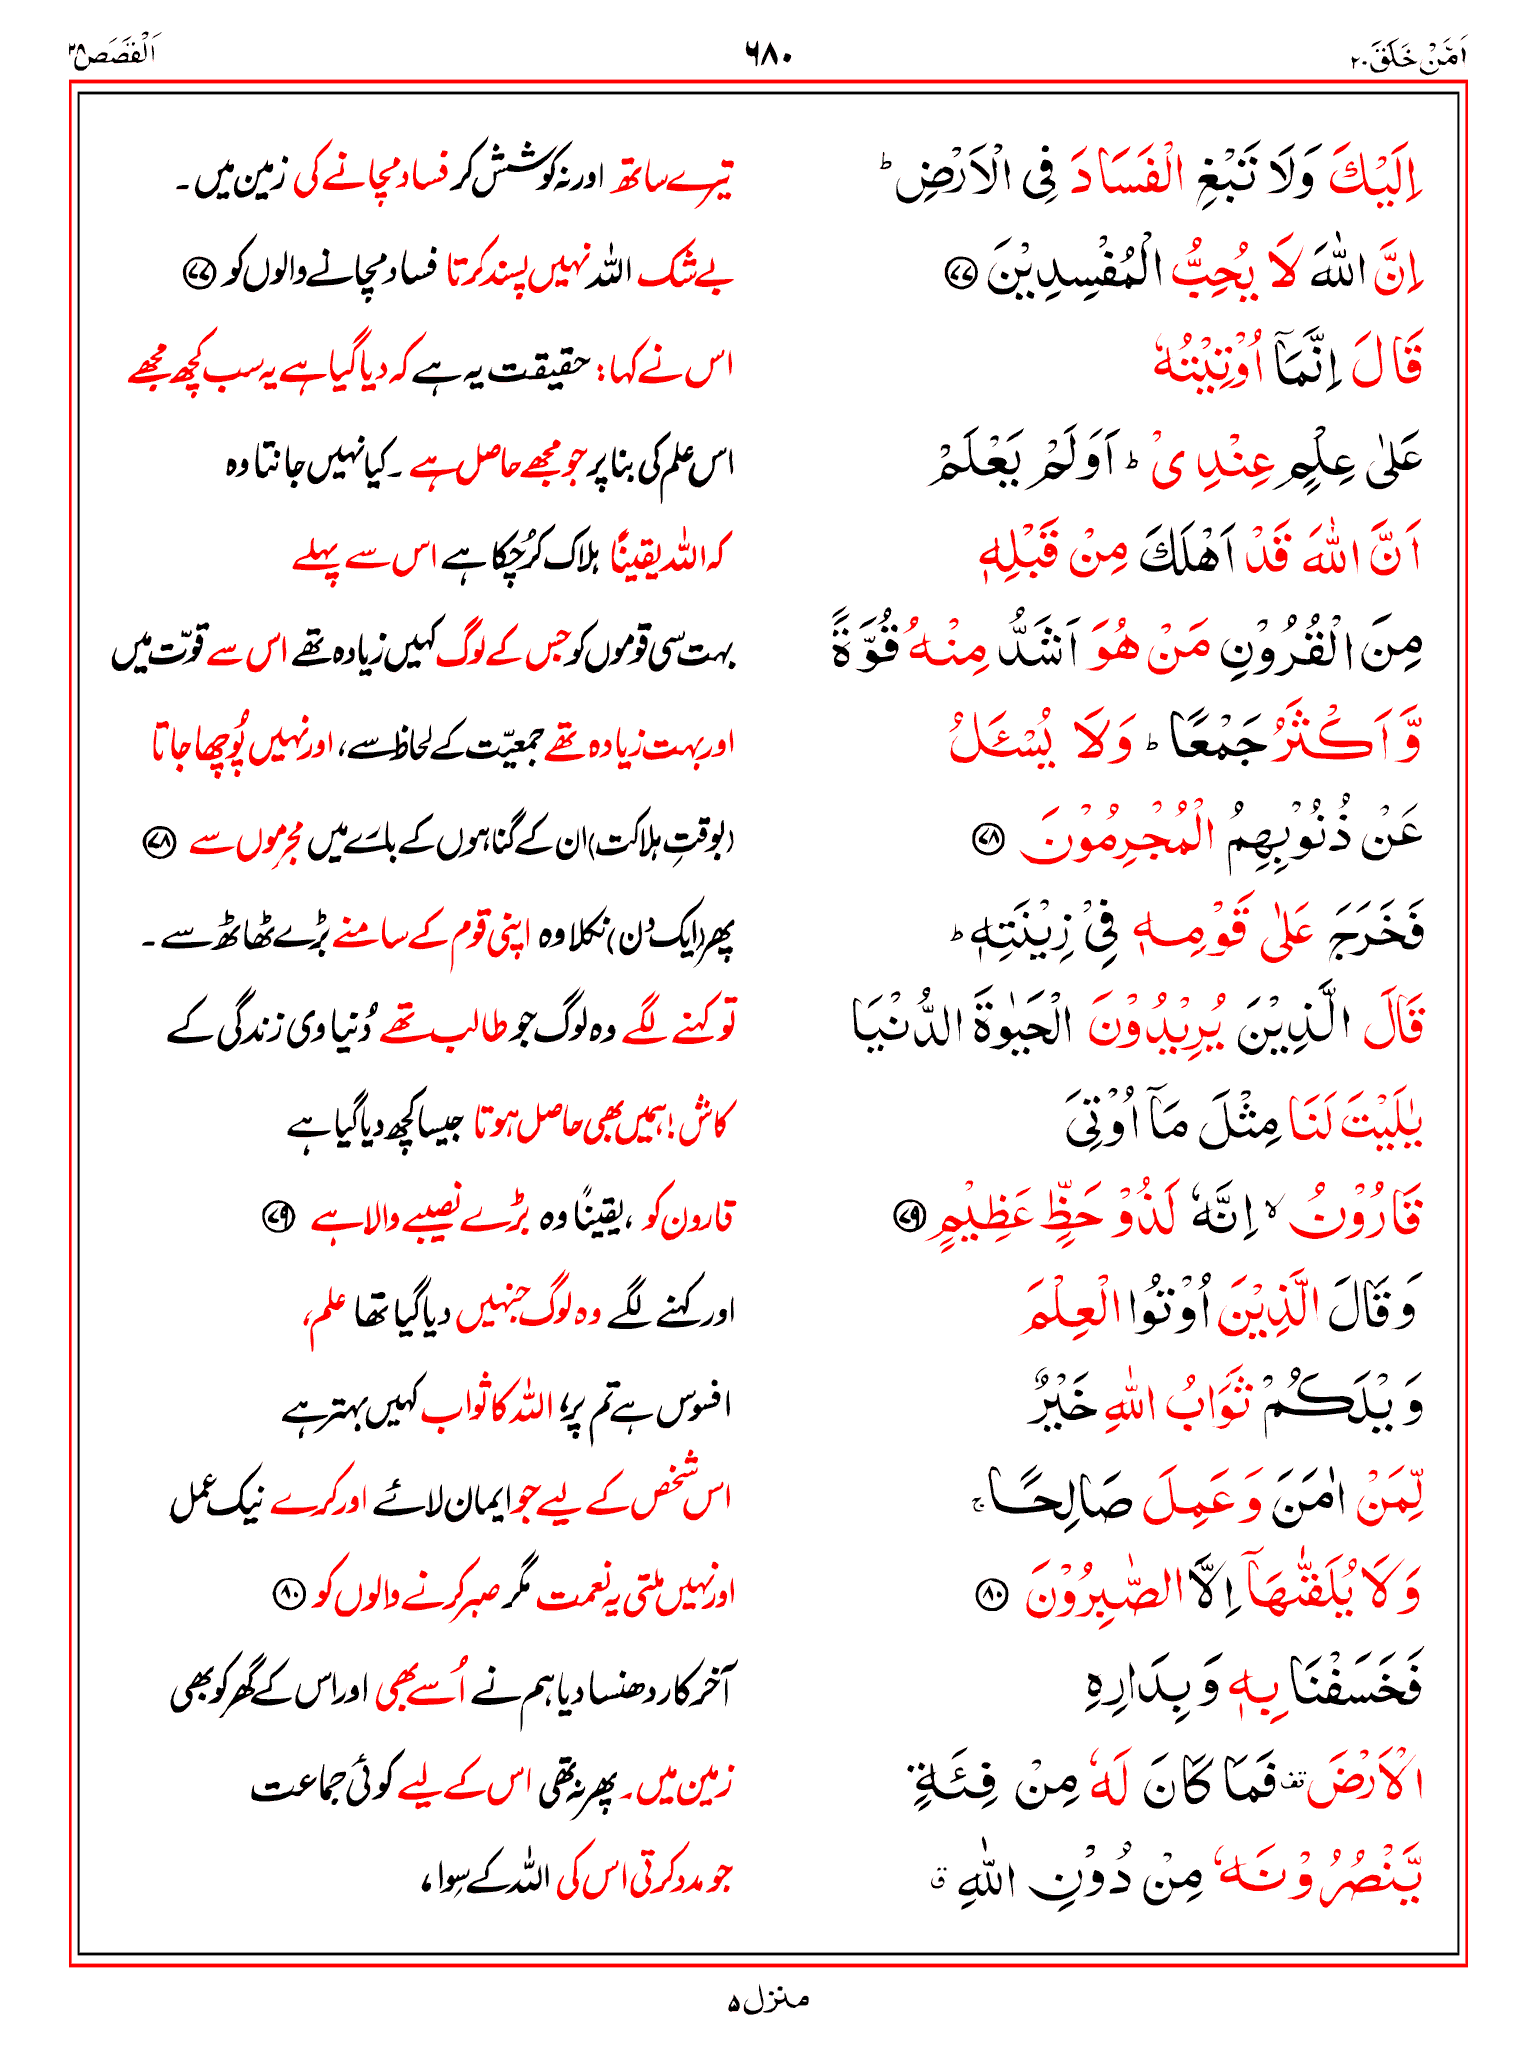 اَمَّنْ خَلَقَ٢٠ ٦٨٠ اَلْقَصَص٢٨
اِلَيْكَ وَلَا تَبْغِ الْفَسَادَ فِى الْاَرْضِ ؕ تیرے ساتھ اور نہ کوشش کر فساد مچانے کی زمین میں۔
اِنَّ اللّٰهَ لَا يُحِبُّ الْمُفْسِدِيْنَ ﴿٧٧﴾ بے شک اللہ نہیں پسند کرتا فساد مچانے والوں کو ﴿٧٧﴾
قَالَ اِنَّمَاۤ اُوْتِيْتُهٗ اس نے کہا: حقیقت یہ ہے کہ دیا گیا ہے یہ سب کچھ مجھے
عَلٰى عِلْمٍ عِنْدِىْ ؕ اَوَلَمْ يَعْلَمْ اس علم کی بنا پر جو مجھے حاصل ہے۔ کیا نہیں جانتا وہ
اَنَّ اللّٰهَ قَدْ اَهْلَكَ مِنْ قَبْلِهٖ کہ اللہ یقیناً ہلاک کرچُکا ہے اس سے پہلے
مِنَ الْقُرُوْنِ مَنْ هُوَ اَشَدُّ مِنْهُ قُوَّةً بہت سی قوموں کو جس کے لوگ کہیں زیادہ تھے اس سے قوّت میں
وَّاَكْثَرُ جَمْعًا ؕ وَلَا يُسْـَٔلُ اور بہت زیادہ تھے جمعیّت کے لحاظ سے، اور نہیں پُوچھا جاتا
عَنْ ذُنُوْبِهِمُ الْمُجْرِمُوْنَ ﴿٧٨﴾ (بوقتِ ہلاکت) ان کے گناہوں کے بارے میں مجرموں سے ﴿٧٨﴾
فَخَرَجَ عَلٰى قَوْمِهٖ فِىْ زِيْنَتِهٖ ؕ پھر (ایک دن) نکلا وہ اپنی قوم کے سامنے بڑے ٹھاٹھ سے۔
قَالَ الَّذِيْنَ يُرِيْدُوْنَ الْحَيٰوةَ الدُّنْيَا تو کہنے لگے وہ لوگ جو طالب تھے دُنیاوی زندگی کے
يٰلَيْتَ لَنَا مِثْلَ مَاۤ اُوْتِىَ کاش! ہمیں بھی حاصل ہوتا جیسا کچھ دیا گیا ہے
قَارُوْنُ ۙ اِنَّهٗ لَذُوْ حَظٍّ عَظِيْمٍ ﴿٧٩﴾ قارون کو، یقیناً وہ بڑے نصیبے والا ہے ﴿٧٩﴾
وَقَالَ الَّذِيْنَ اُوْتُوا الْعِلْمَ اور کہنے لگے وہ لوگ جنہیں دیا گیا تھا علم،
وَيْلَكُمْ ثَوَابُ اللّٰهِ خَيْرٌ افسوس ہے تم پر، اللہ کا ثواب کہیں بہتر ہے
لِّمَنْ اٰمَنَ وَعَمِلَ صَالِحًا ۚ اس شخص کے لیے جو ایمان لائے اور کرے نیک عمل
وَلَا يُلَقّٰٮهَاۤ اِلَّا الصّٰبِرُوْنَ ﴿٨٠﴾ اور نہیں ملتی یہ نعمت مگر صبر کرنے والوں کو ﴿٨٠﴾
فَخَسَفْنَا بِهٖ وَبِدَارِهِ آخر کار دھنسا دیا ہم نے اُسے بھی اور اس کے گھر کو بھی
الْاَرْضَ ۟ فَمَا كَانَ لَهٗ مِنْ فِئَةٍ زمین میں۔ پھر نہ تھی اس کے لیے کوئی جماعت
يَّنْصُرُوْنَهٗ مِنْ دُوْنِ اللّٰهِ ۚ ق جو مدد کرتی اس کی اللہ کے سِوا،
منزل ۵